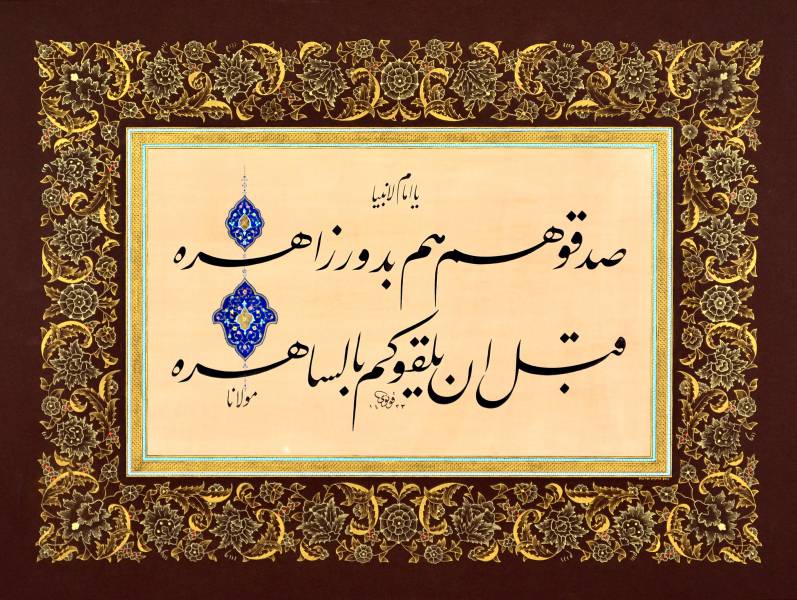 یا امام الانبیا
صدقوهم هم بدور زاهره
قبل ان یلقوکم بالساهره
مولانا